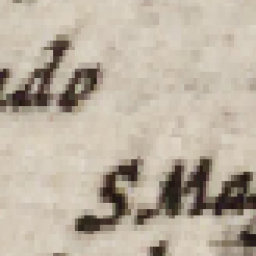 ndo
S. Ma